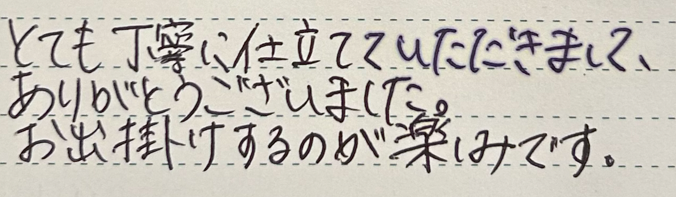 とても丁寧に仕立てていただきまして、
ありがとうございました。
お出掛けするのが楽しみです。